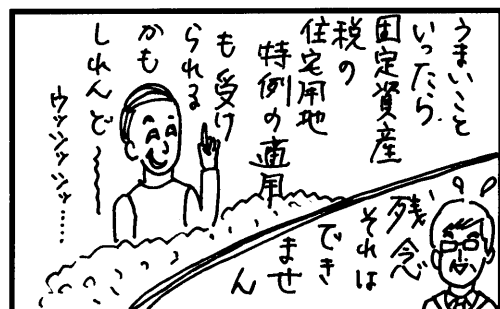 うまいこと
いったら
固定資産
税の
住宅用地
特例の適用
も受け
られる
かも
しれんど〜〜
ウッシッシッ……
残念
それは
でき
ませ
ん